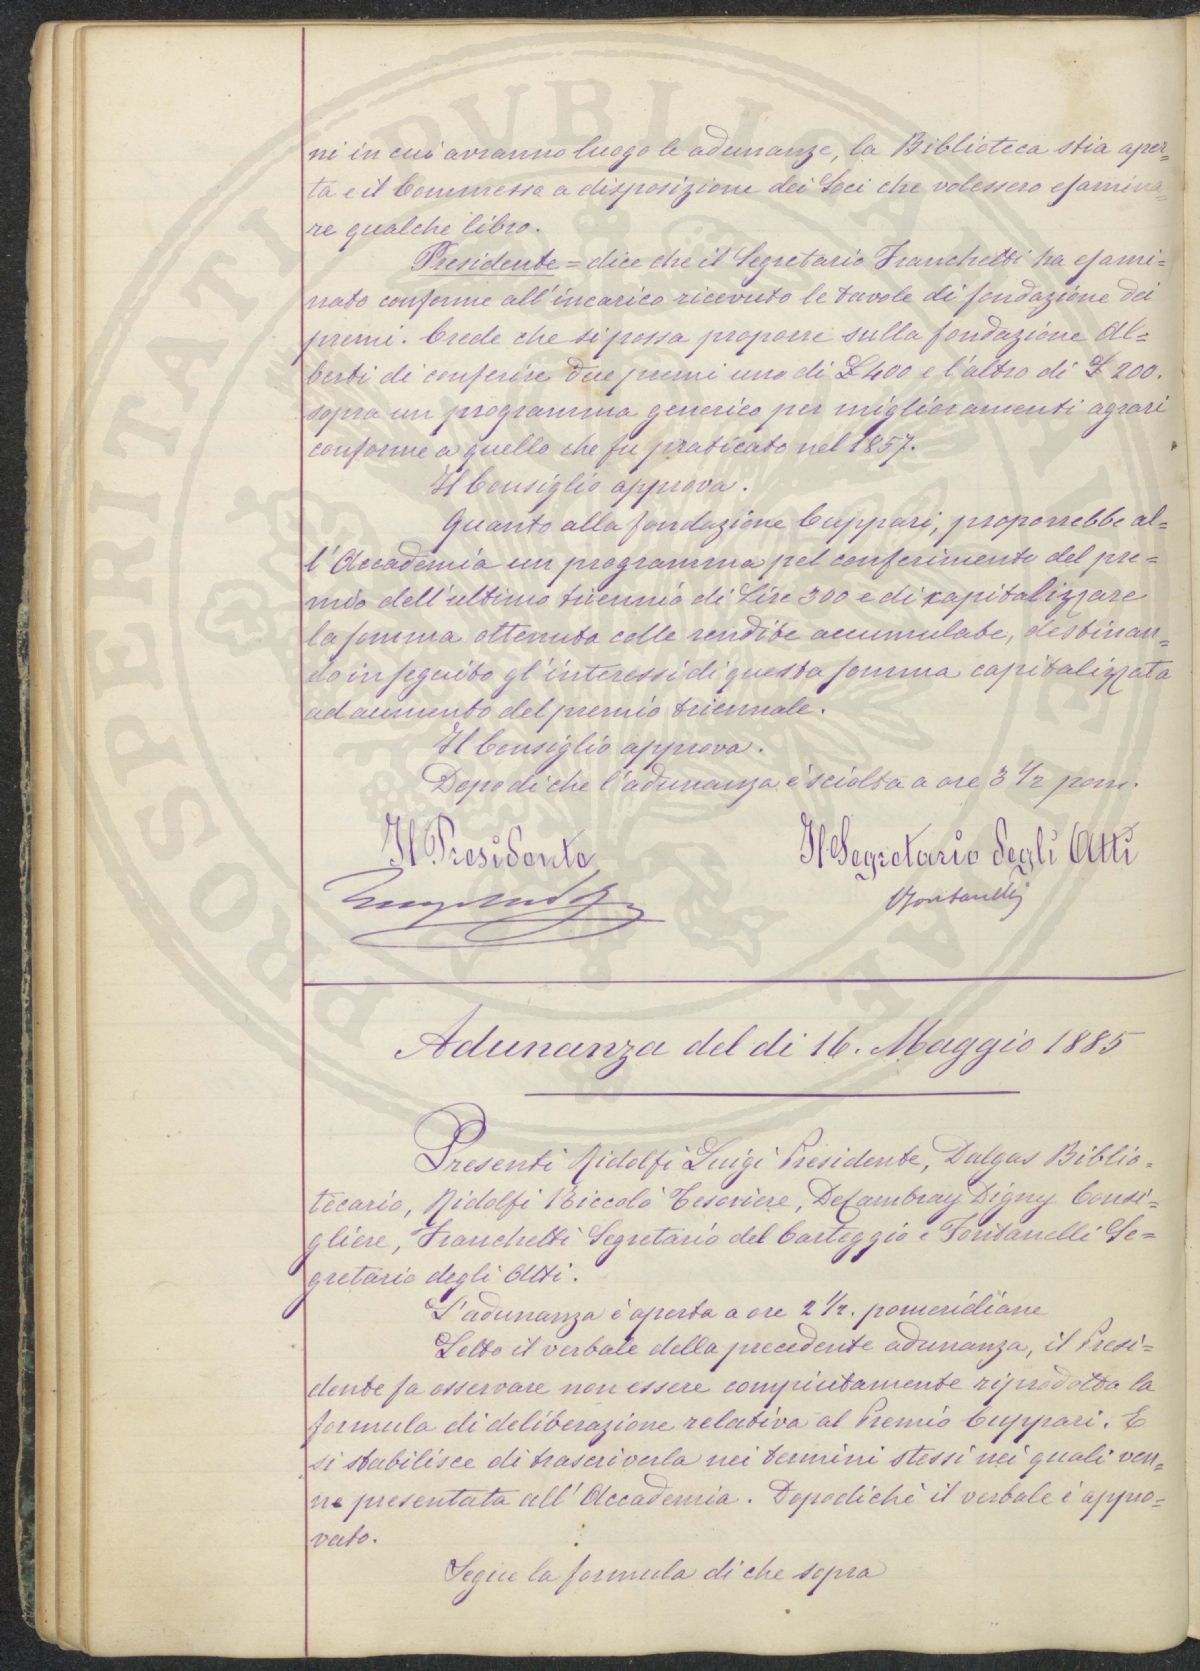 ni in cui avranno luogo le adunanze, la Biblioteca stia aper=
ta e il Commesso a disposizione dei Soci che volessero esamina=
re qualche libro.
Presidente = dice che il Segretario Franchetti ha esami=
nato conforme all'incarico ricevuto le tavole di fondazione dei
premi. Crede che si possa proporre sulla fondazione Al=
berti di conferire due premi uno di £ 400 e l'altro di £ 200.
sopra un programma generico per miglioramenti agrari
conforme a quello che fu praticato nel 1857.
Il Consiglio approva.
Quanto alla fondazione Cuppari, proporrebbe al=
l'Accademia un programma pel conferimento del pre=
mio dell'ultimo triennio di Lire 300 e di capitalizzare
la somma ottenuta colle rendite accumulate, destinan=
do in seguito gl'interessi di questa somma capitalizzata
ad aumento del premio triennale.
Il Consiglio approva.
Dopo di che l'adunanza è sciolta a ore 3 1/2 pom.
Il Presidente
Il Segretario degli Atti
Fontanelli
Adunanza del di 16. Maggio 1885
Presenti Ridolfi Luigi Presidente, Dalgas Biblio=
tecario, Ridolfi Niccolò Tesoriere, DeCambray Digny Consi=
gliere, Franchetti Segretario del Carteggio e Fontanelli Se=
gretario degli Atti.
L'adunanza è aperta a ore 2 1/2. pomeridiane
Letto il verbale della precedente adunanza, il Presi=
dente fa osservare non essere compiutamente riprodotta la
formula di deliberazione relativa al Premio Cuppari. E
si stabilisce di trascriverla nei termini stessi nei quali ven=
ne presentata all'Accademia. Dopodichè il verbale è appro=
vato.
Segue la formula di che sopra
PROSPERITATI PVBLICAE